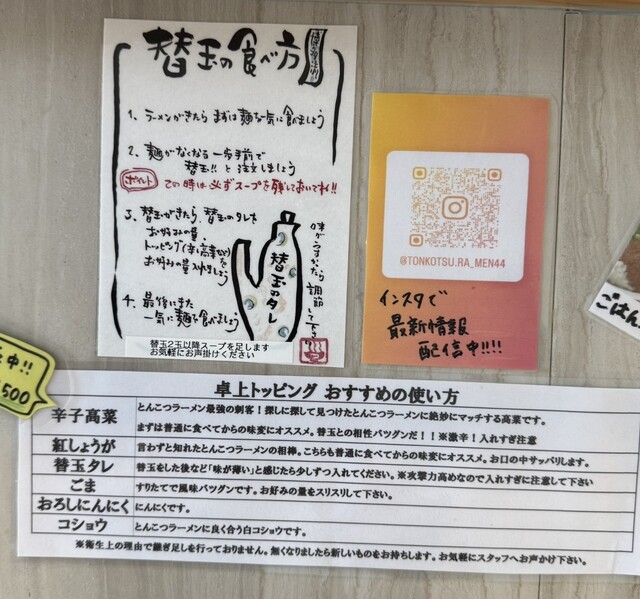 替玉の食べ方
1、ラーメンがきたら まずは麺を一気に食べましょう
2、麺がなくなる一歩手前で
替玉!! と注文しましょう
ポイント この時は必ずスープを残しておいてね!!
3、替玉がきたら、替玉のタレを
お好みの量、
トッピング(辛し高菜など)を
お好みの量入れましょう
4、最後にまた
一気に麺を食べましょう
替玉のタレ
味がうすかったら調節して下さい
替玉2玉以降スープを足します
お気軽にお声掛けください
@TONKOTSU.RA_MEN44
インスタで
最新情報
配信中!!!!
ごはん
中!!
500
卓上トッピング おすすめの使い方
辛子高菜 とんこつラーメン最強の刺客!探しに探して見つけたとんこつラーメンに絶妙にマッチする高菜です。
まずは普通に食べてからの味変にオススメ。替玉との相性バツグンだ!!※激辛!入れすぎ注意
紅しょうが 言わずと知れたとんこつラーメンの相棒。こちらも普通に食べてからの味変にオススメ。お口の中サッパリします。
替玉タレ 替玉をした後など「味が薄い」と感じたら少しずつ入れてください。※攻撃力高めなので入れすぎに注意して下さい
ごま すりたてで風味バツグンです。お好みの量をスリスリして下さい。
おろしにんにく にんにくです。
コショウ とんこつラーメンに良く合う白コショウです。
※衛生上の理由で継ぎ足しを行っておりません。無くなりましたら新しいものをお持ちします。お気軽にスタッフへお声かけ下さい。